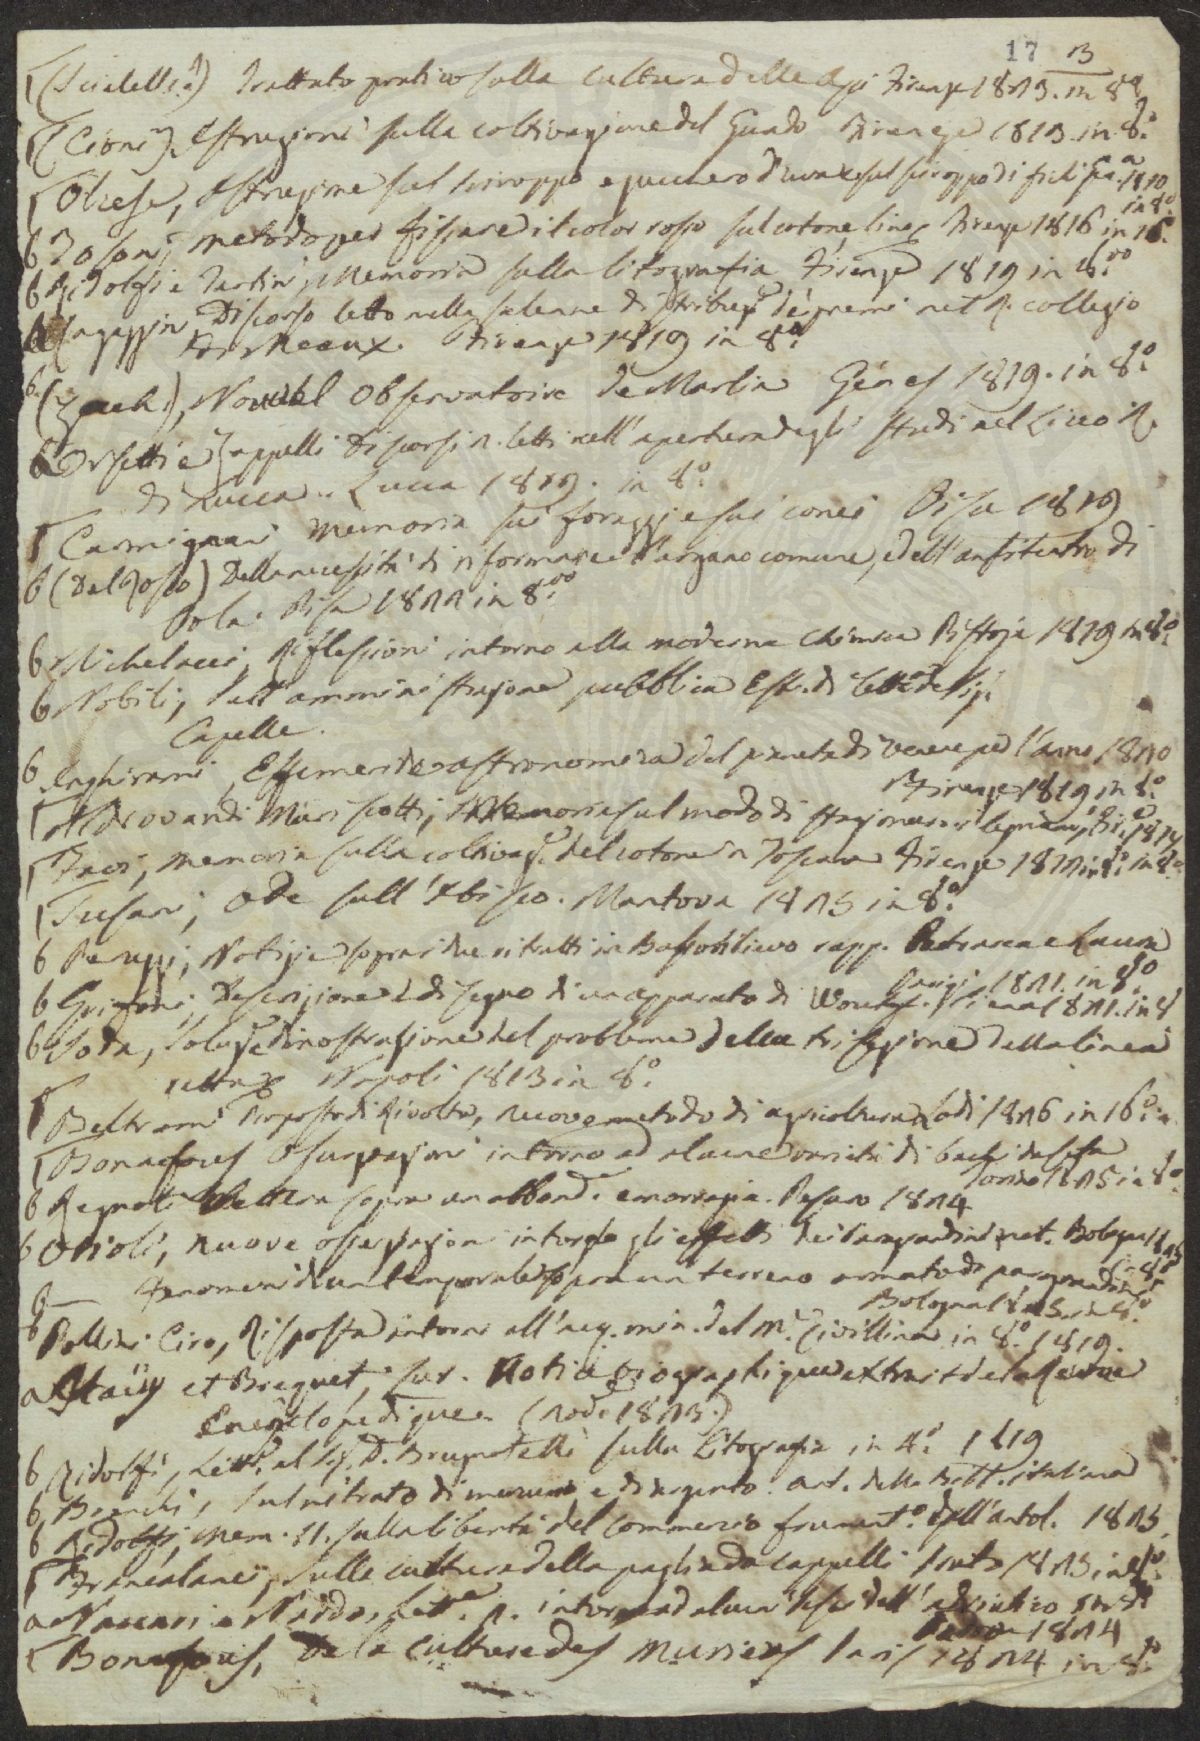 17 B
Trattato pratico sulla cultura delle Api Firenze 18 in 8º
(Cioni) Istruzioni sulla coltivazione del Guado Firenze 1813 in 8º
sul sciroppo e zucchero d'uva e sul sciroppo di fichi 1810
in 8º
b metodo per fissare il color rosso sul cotone, lino, Firenze 1816 in
b Ridolfi e Tartini, Memoria sulla litografia Firenze 1819 in 8º
Discorso letto nella solenne distribuz. de' premi nel R. collegio
Firenze 1819 in 8º
b (Zach.), Nouvel Observatoire de Marlia Genes 1819. in 8º
b Orsetti e Zappelli Discorsi 2. letti nell' apertura degli studi nel Liceo R.
di Lucca. Lucca 1819. in 8º
Carmignani Memoria sui foraggi e sui conci Pisa 1819
b (Del Rosso) Della necessità di riformare l'argano comune, e dell' anfiteatro di
Pola. Pisa 1822 in 8.
b Michelacci, Riflessioni intorno alla moderna chimica Pistoja 1819 in 8º
b Nobili, sull' amministrazione pubblica Estr. di lett. de Sig.
Capelle.
b Inghirami, Effemeride astronomica del pianeta di Venere per l'anno 1820
Firenze 1819 in 8º
Aldrovandi Mariscotti, Memoria sul modo di stagionare i legnami,
memoria sulla coltivaz. del cotone in Toscana Firenze in 8º
Tusani, Ode sull' Ibisco. Mantova 1825 in 8º
b Notizie sopra i due ritratti in Bassorilievo rapp. Petrarca e Laura
Parigi 1821. in 8º
b Descrizione e disegno di un apparato di Woulf. Siena 1821. in 8
b Soluz. e dimostrazione del problema della trisezione della linea
retta Napoli 1813 in 8º
Beltrami Proposta di Rivolta, nuovo metodo di agricoltura Lodi 1826 in 16º
Bonafous Osservazioni intorno ad alcune varietà di bachi da seta
Torino 1825 in 8º
b Regnoli Lettera sopra un abbond. emorragia. Pesaro 1824
b Orioli, nuove osservazioni intorno gli effetti dei paragrandini met. Bologna 1825
in 8º
b — Fenomeni di un temporale sopra un terreno armato di paragrandini
Bologna 1825. in 8º
b Pollini Ciro, Risposta intorno all' acq. min. del M. Civillina in 8º 1819.
a Haüy et Breguet, sur. Notice biographique extrait de la Revue
Encyclopedique. (nov. 1823.)
b Ridolfi, Lett. al Sig. D. Brugnatelli sulla Litografia in 4º 1819
b Branchi, sul nitrato di mercurio e di argento. art. della Bibl. italiana
b Ridolfi, Mem. II. sulla libertà del commercio frument. dall' antol. 1825
Francalanci, sulle culture della paglia da cappelli Prato 1825 in 8º
a Naccari e Nardo, Lett. 2. intorno ad alcuni pesci dell' adriatico in 8º
Padova 1824
Bonafous, De la Culture des Muriers Paris 1824 in 8º